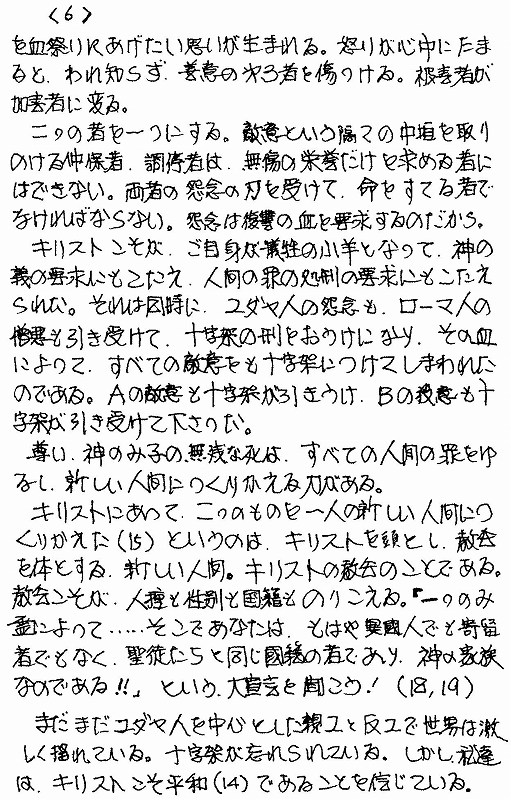 〈6〉
を血祭りにあげたい思いが生まれる。怒りが心中にたま
ると、われ知らず、善意の第3者を傷つける。被害者が
加害者に変る。
二つの者を一つにする。敵意という隔ての中垣を取り
のける仲保者、調停者は、無傷の栄誉だけを求める者に
はできない。両者の怨念の刃を受けて、命をすてる者で
なければならない。怨念は復讐の血を要求するのだから。
キリストこそが、ご自身が犠牲の小羊となって、神の
義の要求にもこたえ、人間の罪の処刑の要求にもこたえ
られた。それは同時に、ユダヤ人の怨念も、ローマ人の
憎悪も引き受けて、十字架の刑をおうけになり、その血
によって、すべての敵意をも十字架につけてしまわれた
のである。Aの敵意も十字架が引きうけ、Bの殺意も十
字架が引き受けて下さった。
尊い、神のみ子の無残な死は、すべての人間の罪をゆ
るし、新しい人間につくりかえる力がある。
キリストにあって、二つのものを一人の新しい人間につ
くりかえた(15)というのは、キリストを頭とし、教会
を体とする、新しい人間。キリストの教会のことである。
教会こそが、人種も性別も国籍ものりこえる。「一つのみ
霊によって……そこであなたは、もはや異国人でも寄留
者でもなく、聖徒たちと同じ国籍の者であり、神の家族
なのである!!」という、大宣言を聞こう!(18,19)
まだまだユダヤ人を中心とした親ユと反ユで世界は激
しく揺れている。十字架が忘れられている。しかし私達
は、キリストこそ平和(14)であることを信じている。